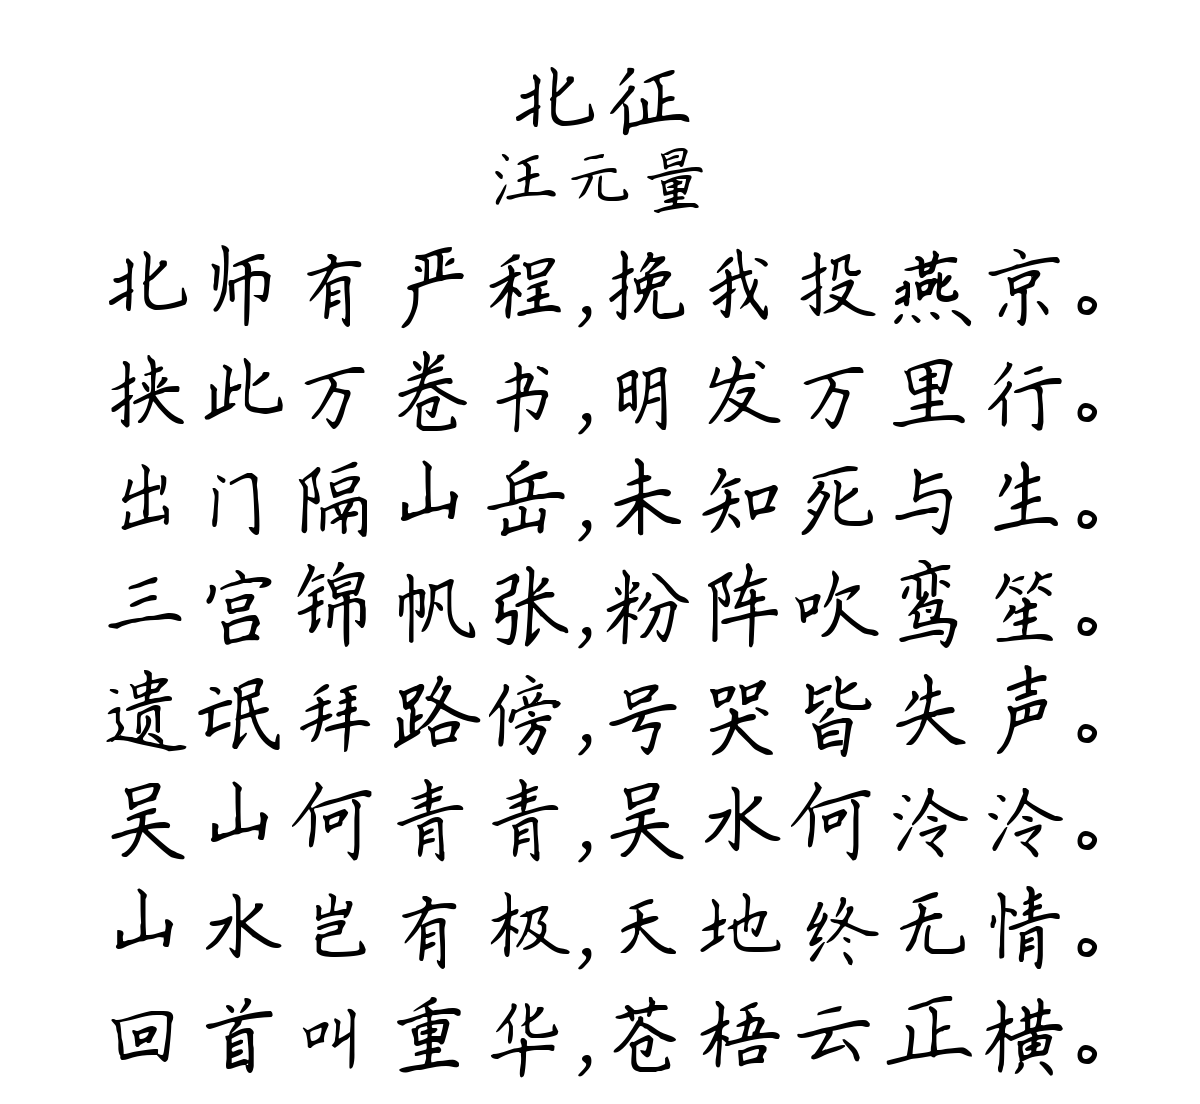 北征
汪元量
北师有严程,挽我投燕京。
挟此万卷书,明发万里行。
出门隔山岳,未知死与生。
三宫锦帆张,粉阵吹鸾笙。
遗氓拜路傍,号哭皆失声。
吴山何青青,吴水何泠泠。
山水岂有极,天地终无情。
回首叫重华,苍梧云正横。